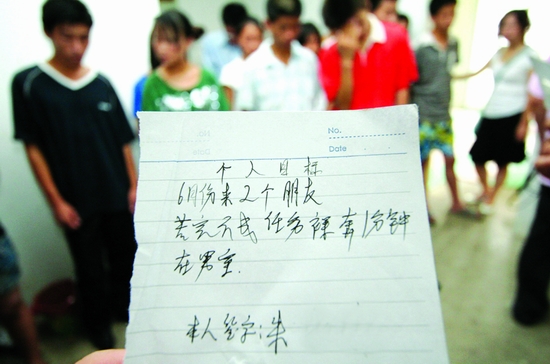 No.
Date
个人目标
6月份来2个朋友
若完不成任务裸奔1分钟
在男室.
本人签字:朱